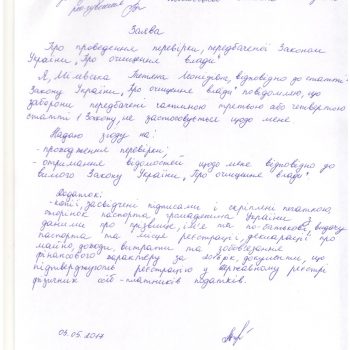 Заява
Про проведення перевірки, передбаченої Законом
України „Про очищення влади"
Я, Тетяна Леонідівна, відповідно до статті
Закону України „Про очищення влади" повідомляю, що
заборони передбачені частиною третьою або четвертою
статті 1 Закону, не застосовується щодо мене
Надаю згоду на:
- проходження перевірки;
- отримання відомостей щодо мене відповідно до
вимог Закону України „Про очищення влади".
Додаток:
- копії, засвідчені підписами і скріплені печаткою,
сторінок паспорта громадянина України з
даними про прізвище, ім'я та по-батькові, видачу
паспорта та місце реєстрації, декларації про
майно, доходи, витрати та зобов'язання
фінансового характеру за рік, документи, що
підтверджують реєстрацію у державному реєстрі
фізичних осіб - платників податків.
03.05.2017